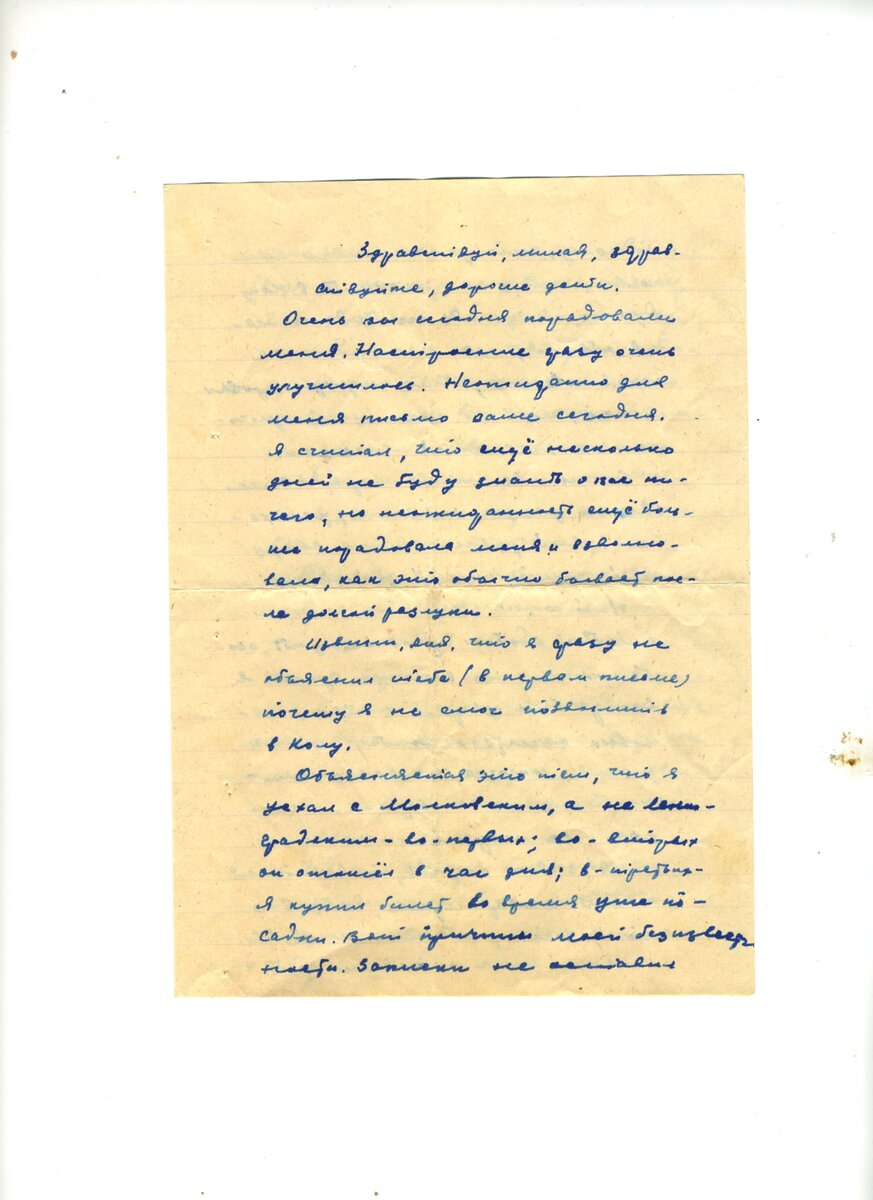 Здравствуй, милая, здрав-
ствуйте, дорогие дети.
Очень вы сегодня порадовали
меня. Настроение сразу очень
улучшилось. Неожиданно для
меня письмо ваше сегодня.
Я считал, что ещё несколько
дней не буду знать о вас ни-
чего, но неожиданность ещё боль-
ше порадовала меня и взволно-
вала, как это обычно бывает пос-
ле долгой разлуки.
Извини, что я сразу не
объяснил тебе (в первом письме)
почему я не смог позвонить
в Колу.
Объясняется это тем, что я
уехал с Московским, а не Ленин-
градским - во-первых; во-вторых
он отошёл в час дня; в-третьих -
я купил билет во время уже по-
садки. Вот причины моей безизвест-
ности. Записки не оставил